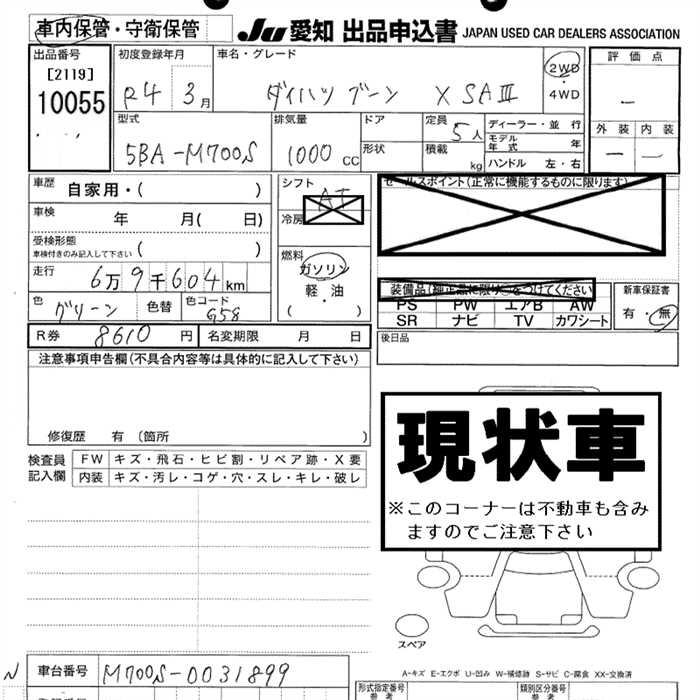 車内保管・守衛保管
JU 愛知 出品申込書 JAPAN USED CAR DEALERS ASSOCIATION
出品番号 [2119] 10055
初度登録年月 R4 3月
車名・グレード ダイハツ ブーン X SAIII
2WD・4WD
評価点 ー
外装 ー 内装 ー
型式 5BA-M700S
排気量 1000 CC
ドア
形状
定員 5人
積載 kg
ディーラー・並行
モデル年式 年
ハンドル 左・右
車歴 自家用・( )
車検 年 月( 日)
受検形態 車検付きのみ記入して下さい ( )
走行 6万9千604km
色 グリーン 色替 色コード G58
シフト AT
冷房
燃料 ガソリン
軽・油
( )
セールスポイント(正常に機能するものに限ります)
装備品(純正品に限り○をつけてください)
PS PW エアB AW
SR ナビ TV カワシート
新車保証書 有・無
R券 8610 円 名変期限 月 日
後日品
注意事項申告欄(不具合内容等は具体的に記入して下さい)
修復歴 有 〔箇所 〕
検査員記入欄
FW キズ・飛石・ヒビ割・リペア跡・X要
内装 キズ・汚レ・コゲ・穴・スレ・キレ・破レ
現状車
※このコーナーは不動車も含み
ますのでご注意下さい
スペア
車台番号 M700S-0031899
N
A-キズ E-エクボ U-凹み W-補修跡 S-サビ C-腐食 XX-交換済
形式指定番号 参考
類別区分番号 参考